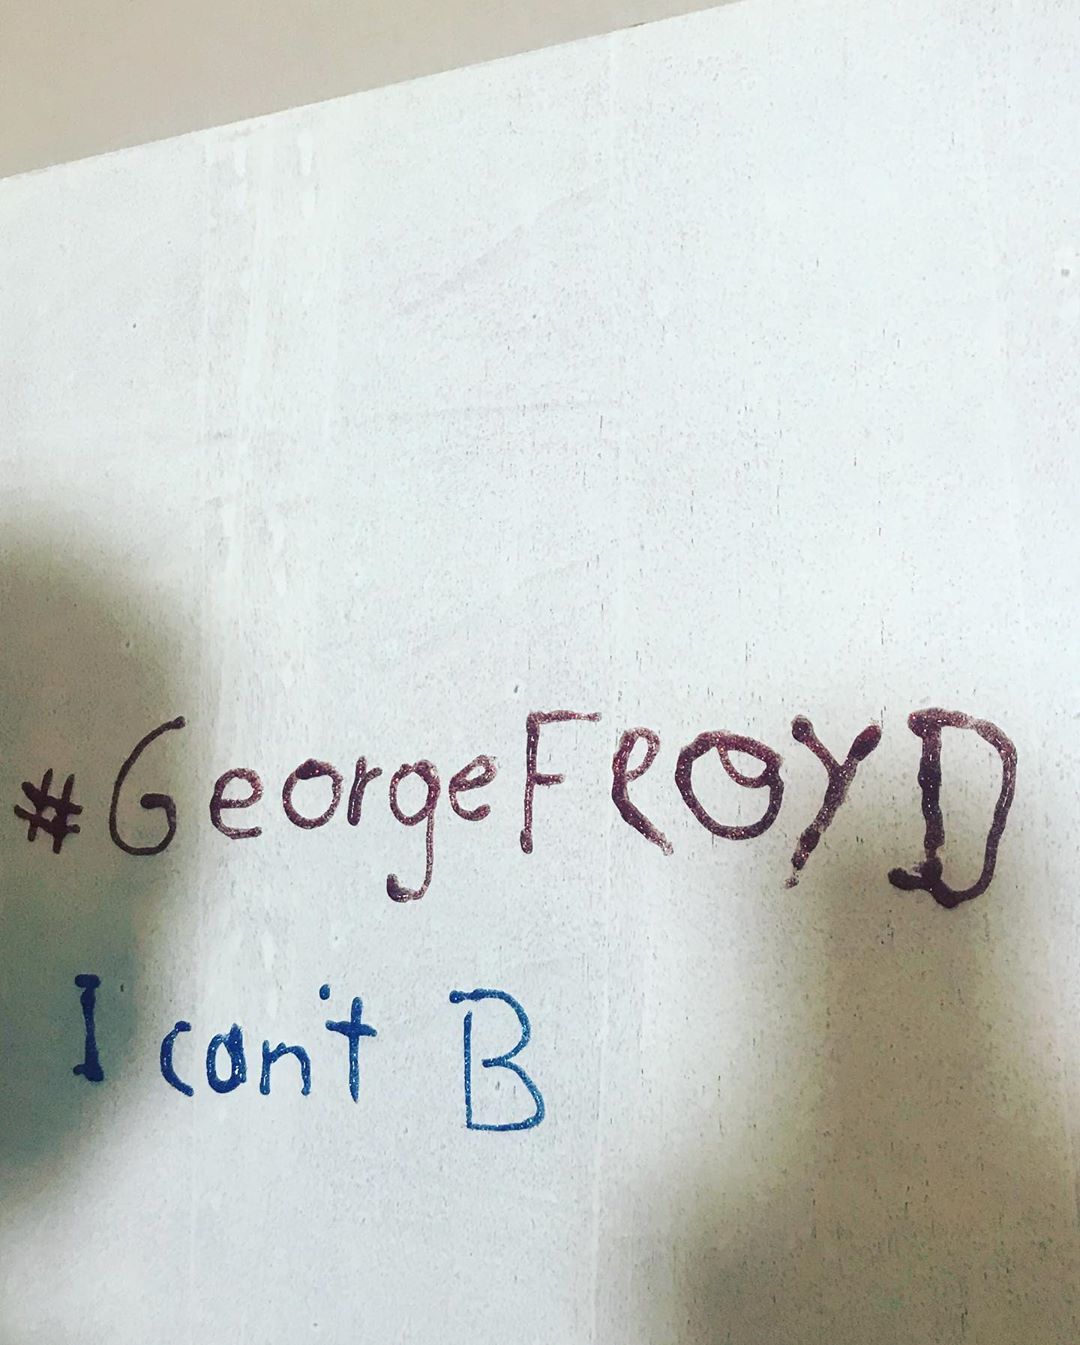 #GeorgeFlOYD
I can't B